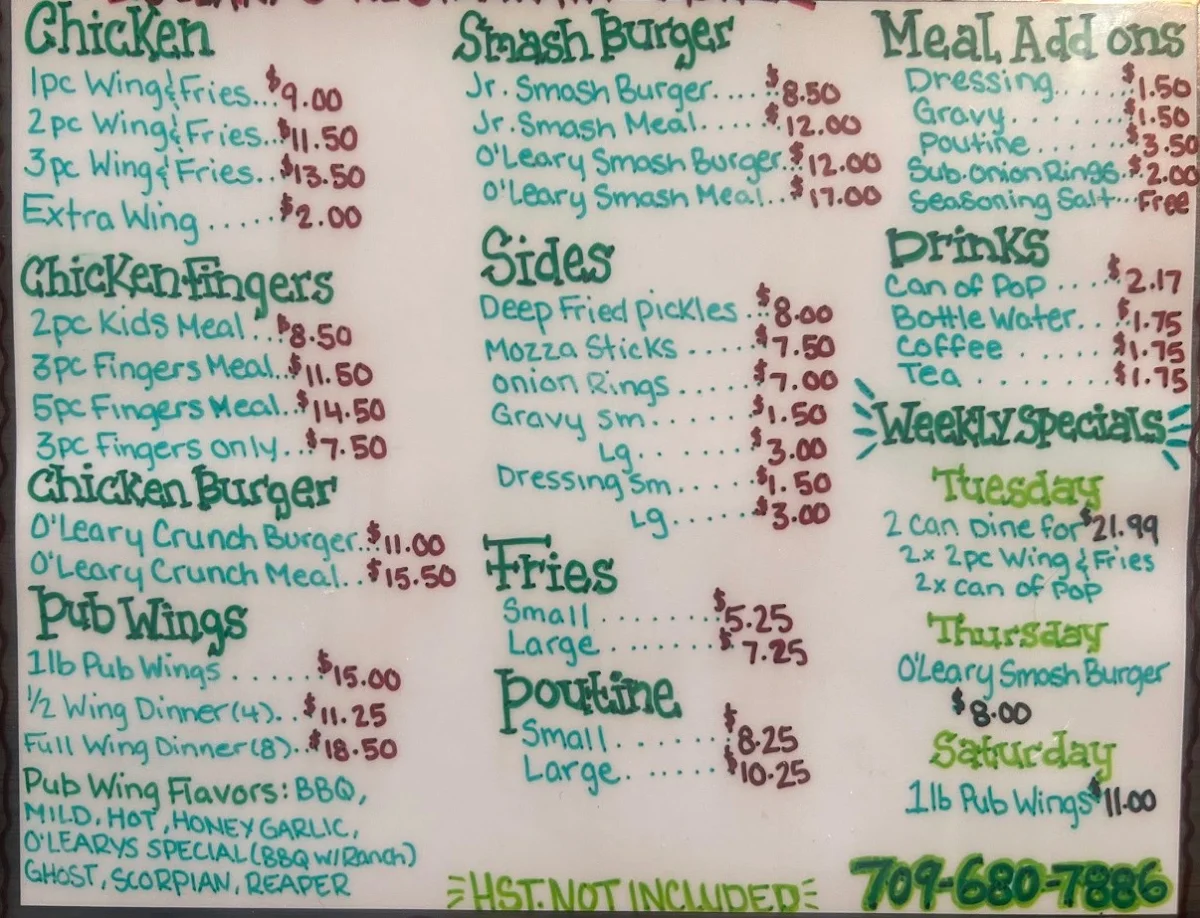 Chicken
1pc Wing & Fries...$9.00
2pc Wing & Fries..$11.50
3pc Wing & Fries..$13.50
Extra Wing .....$2.00
Chicken Fingers
2pc Kids Meal...$8.50
3pc Fingers Meal..$11.50
5pc Fingers Meal..$14.50
3pc Fingers only...$7.50
Chicken Burger
O'Leary Crunch Burger..$11.00
O'Leary Crunch Meal..$15.50
Pub Wings
1lb Pub Wings ......$15.00
1/2 Wing Dinner (4)..$11.25
Full Wing Dinner (8)..$18.50
Pub Wing Flavors: BBQ,
MILD, HOT, HONEY GARLIC,
O'LEARYS SPECIAL (BBQ W/Ranch)
GHOST, SCORPIAN, REAPER
Smash Burger
Jr. Smash Burger.....$8.50
Jr. Smash Meal.....$12.00
O'Leary Smash Burger..$12.00
O'Leary Smash Meal..$17.00
Sides
Deep Fried Pickles ..$8.00
Mozza Sticks .....$7.50
Onion Rings .....$7.00
Gravy Sm.....$1.50
Lg......$3.00
Dressing Sm.....$1.50
Lg.....$3.00
Fries
Small .......$5.25
Large .......$7.25
Poutine
Small.......$8.25
Large......$10.25
HST. NOT INCLUDED
Meal Add ons
Dressing......$1.50
Gravy........$1.50
Poutine ......$3.50
Sub. Onion Rings.$2.00
Seasoning Salt...Free
Drinks
Can of Pop ....$2.17
Bottle Water..$1.75
Coffee ......$1.75
Tea ........$1.75
Weekly Specials
Tuesday
2 Can Dine for $21.99
2x 2pc Wing & Fries
2x can of Pop
Thursday
O'Leary Smash Burger
$8.00
Saturday
1lb Pub Wings $11.00
709-680-7886